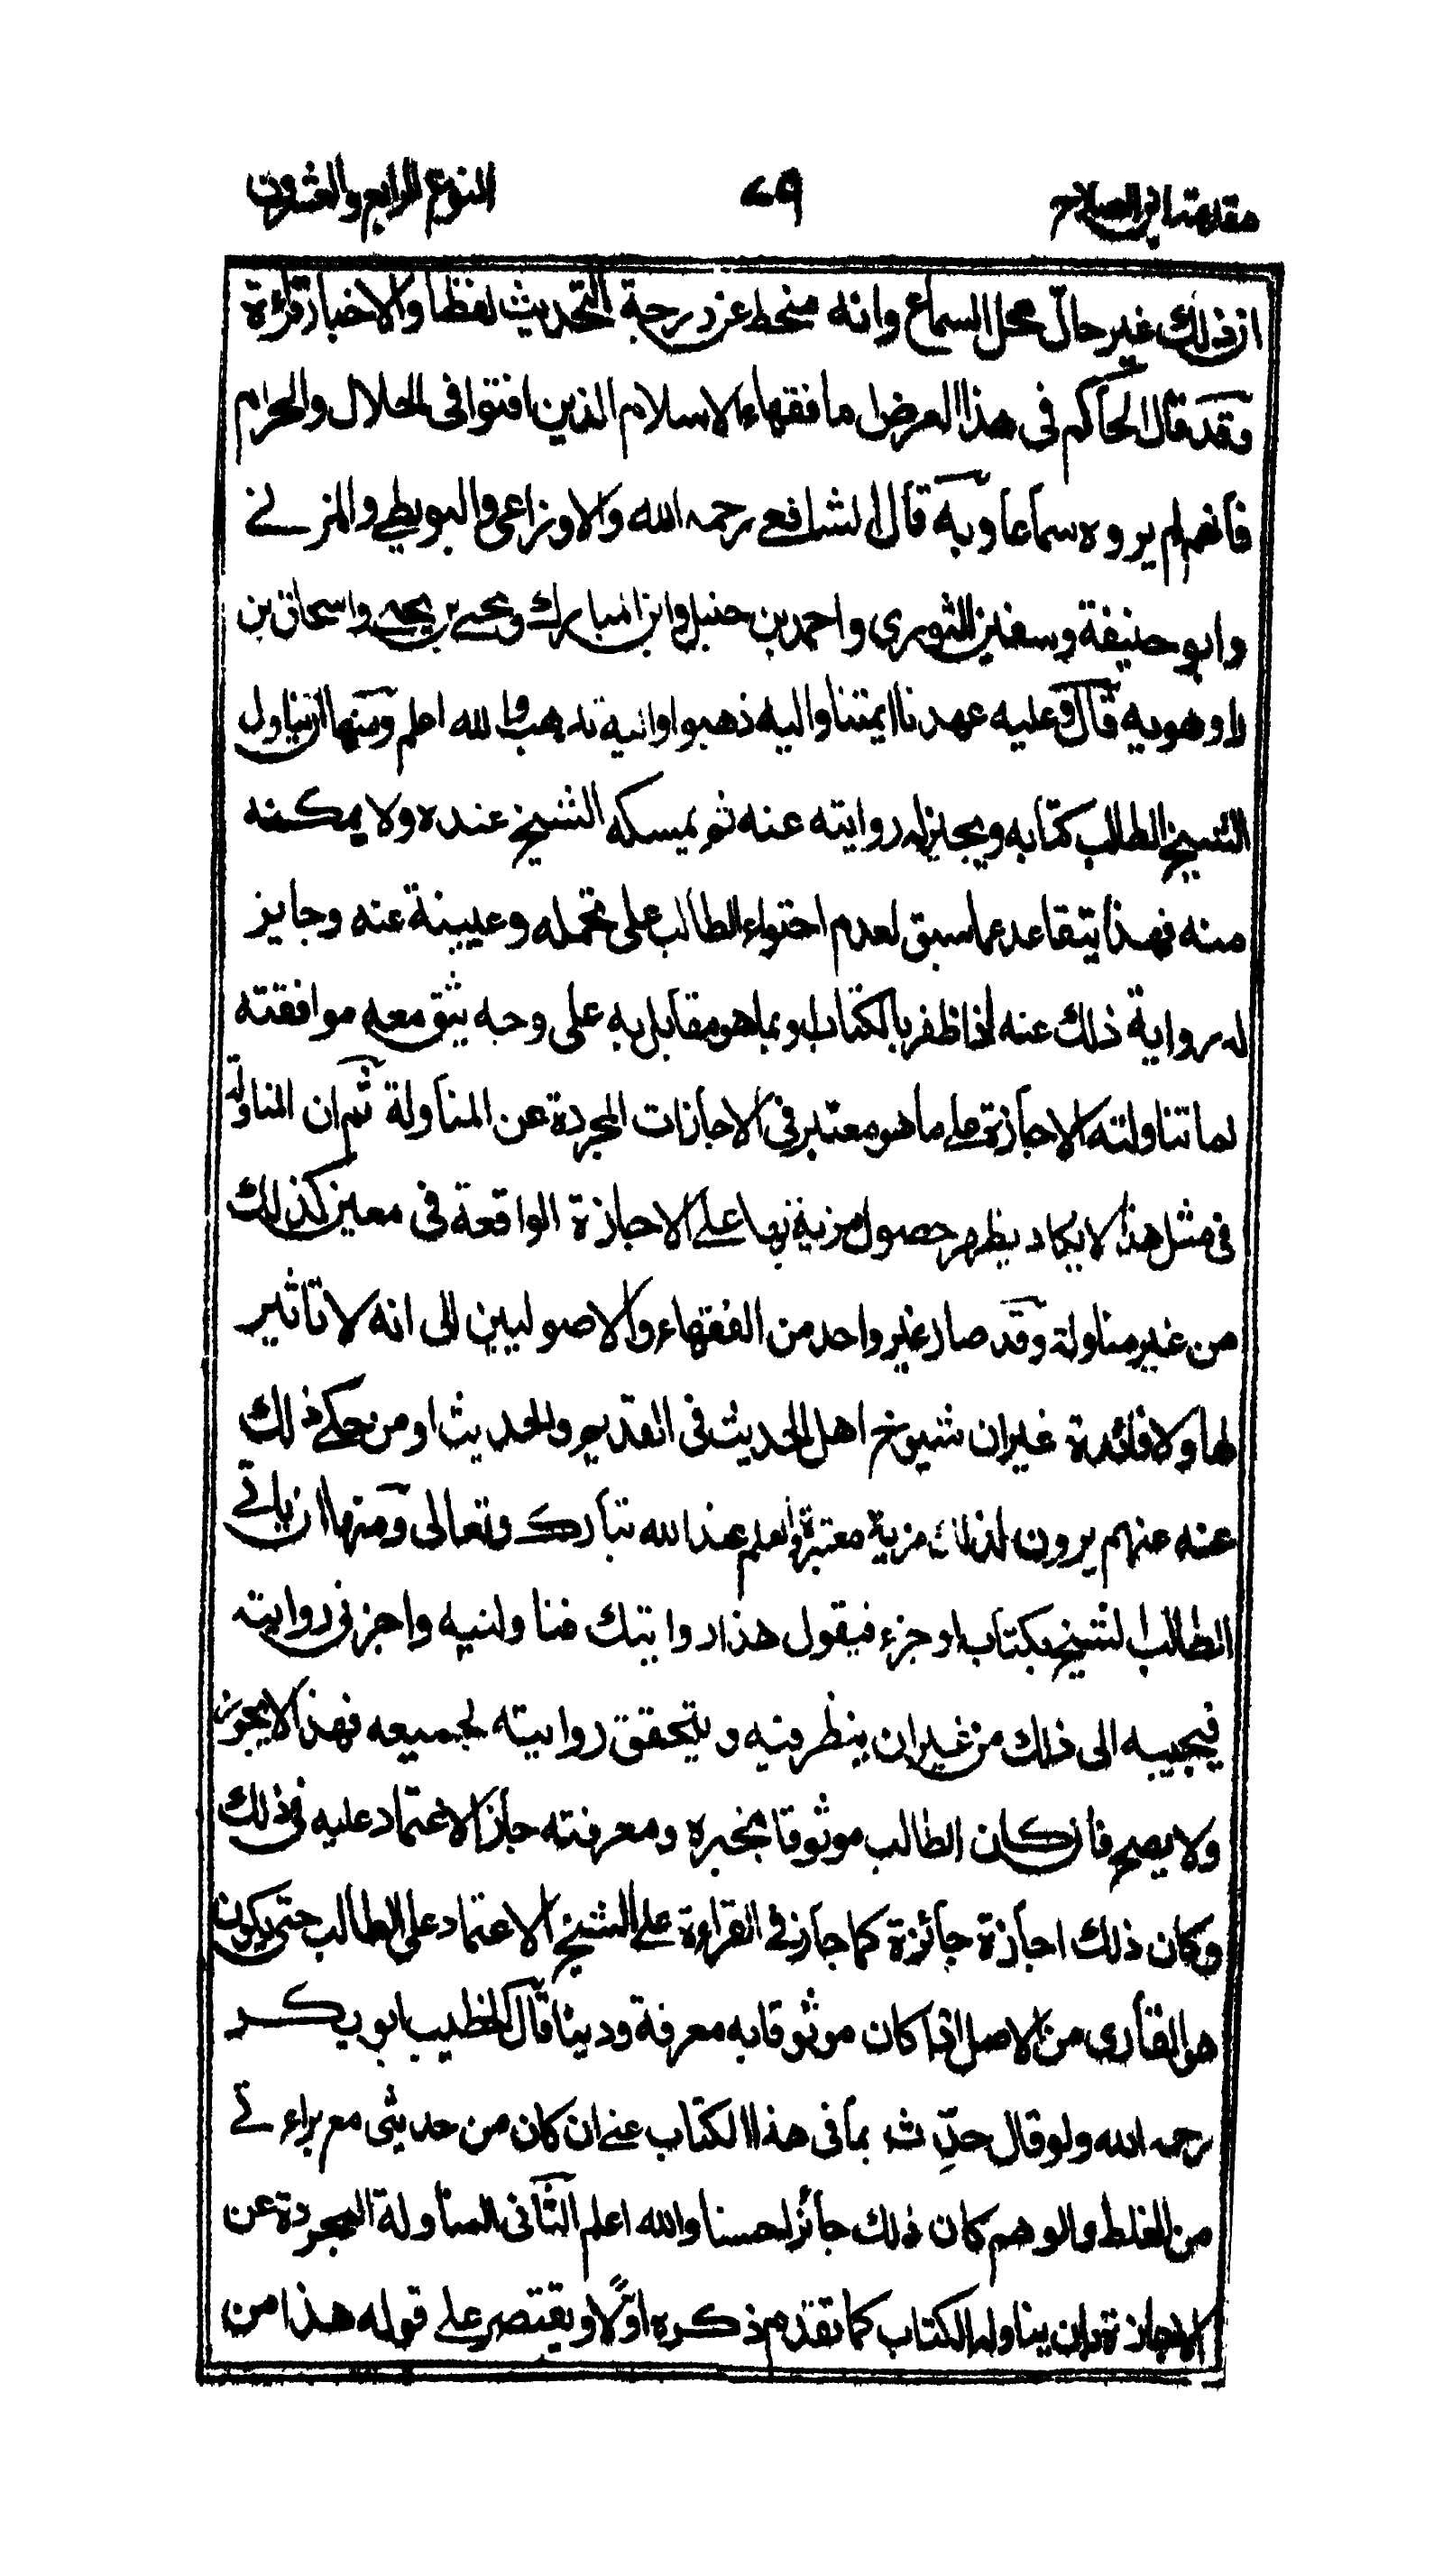 مقدمة ابن الصلاح ٧٩ النوع الرابع والعشرون
ان ذلك غير حال محل السماع وانه منحط عن درجة التحديث لفظا والاخبار قراءة
وقد قال الحاكم فى هذا العرض اما فقهاء الاسلام الذين افتوا فى الحلال والحرام
فانهم لم يروه سماعا وبه قال الشافعے رحمه الله والاوزاعى والبويطے والمزنے
وابو حنيفة وسفين الثوري واحمد بن حنبل وابن المبارك ويحيے بن يحيے واسحاق بن
راهويه قال وعليه عهدنا ائمتنا واليه ذهبوا واليه نذهب والله اعلم ومنها ان يناول
الشيخ الطالب كتابه ويجيز له روايته عنه ثم يمسكه الشيخ عنده ولا يمكنه
منه فهذا يتقاعد عما سبق لعدم احتواء الطالب على تحمله وغيبته عنه وجايز
له رواية ذلك عنه اذا ظفر بالكتاب او بما هو مقابل به على وجه يثق معه موافقته
لما تناولته الاجازة علے ما هو معتبر فى الاجازات المجردة عن المناولة ثم ان المناولة
فى مثل هذا لا يكاد يظهر حصول مزية بها علے الاجازة الواقعة فى معين كذلك
من غير مناولة وقد صار غير واحد من الفقهاء والاصوليين الى انه لا تاثير
لها ولا فائدة غير ان شيوخ اهل الحديث فى القديم والحديث او من حكے ذلك
عنه عنهم يرون لذلك مزية معتبرة والعلم عند الله تبارك وتعالى ومنها ان ياتے
الطالب الشيخ بكتاب او جزء فيقول هذا روايتك فناولنيه واجزنى روايته
فيجيبه الى ذلك من غير ان ينظر فيه ويتحقق روايته لجميعه فهذا لا يجوز
ولا يصح فان كان الطالب موثوقا بخبره ومعرفته جاز الاعتماد عليه فى ذلك
وكان ذلك اجازة جائزة كما جاز فے القراءة علے الشيخ الاعتماد على الطالب حتى يكون
هو القارى من الاصل اذا كان موثوقا به معرفة ودينا قال الخطيب ابو بكر
رحمه الله ولو قال حدّث بما فى هذا الكتاب عنے ان كان من حديثى مع براءتے
من الغلط والوهم كان ذلك جائزا حسنا والله اعلم الثانى المناولة المجردة عن
الاجازة بان يناوله الكتاب كما تقدم ذكره اوّلا ويقتصر علے قوله هذا من